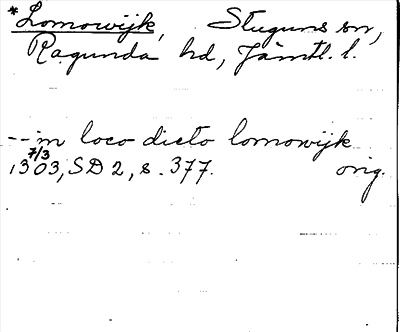 *Lomowijk, Stuguns sn,
Ragunda hd, Jämtl. l.
-- in loco dicto lomowijk
7/3
1303, SD 2, s. 377. orig.